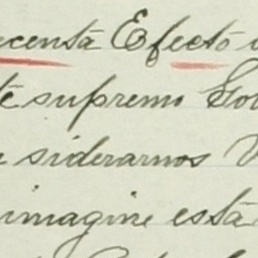 ecenta Efectó
té supremo Go
siderarnos V
imagine está